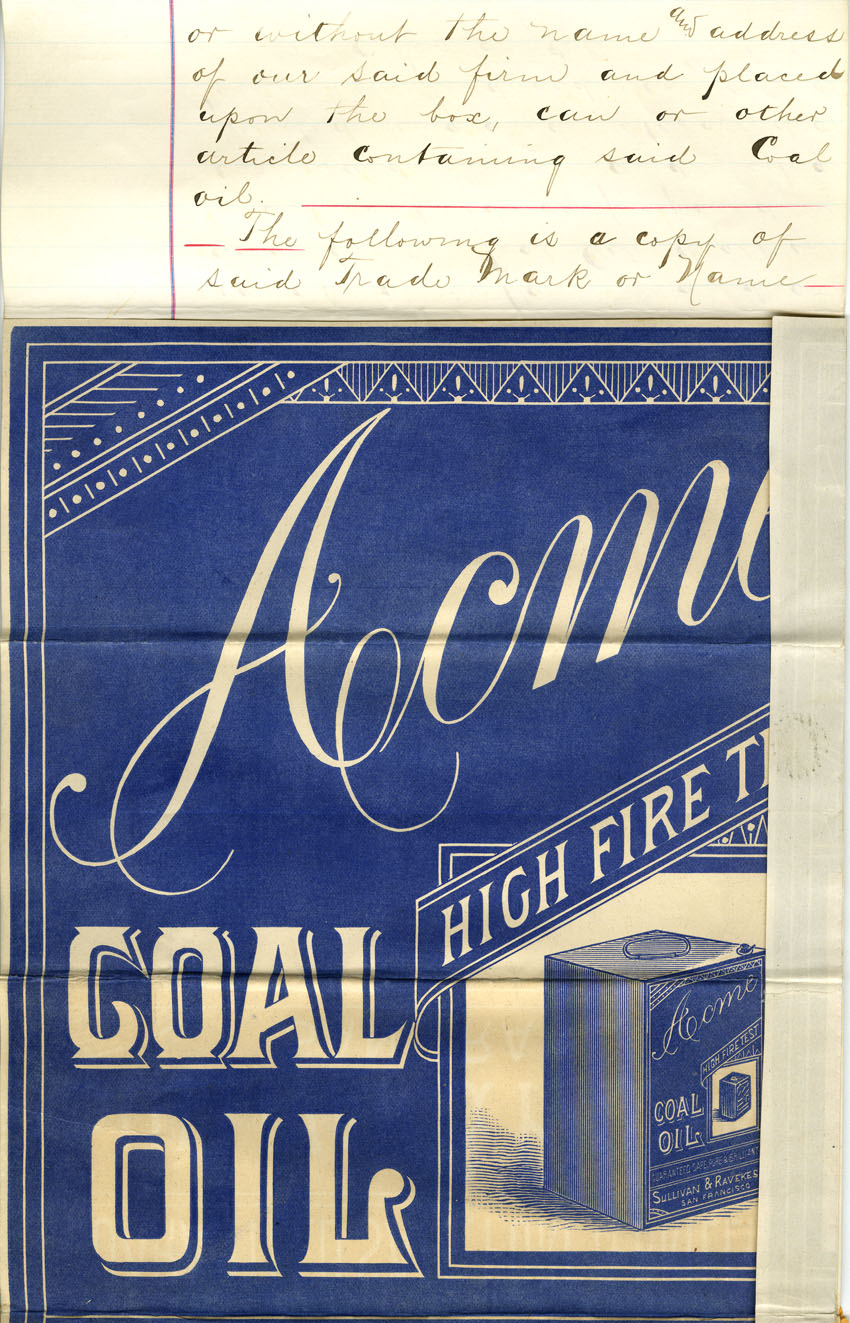 or without the name and address
of our said firm and placed
upon the box, can or other
article containing said Coal
oil.
The following is a copy of
said Trade Mark or Name
Acme
HIGH FIRE TE
COAL
OIL
Acme
HIGH FIRE TEST
COAL
OIL
GUARANTEED SAFE, PURE & BRILLIANT
SULLIVAN & RAVEKES
SAN FRANCISCO